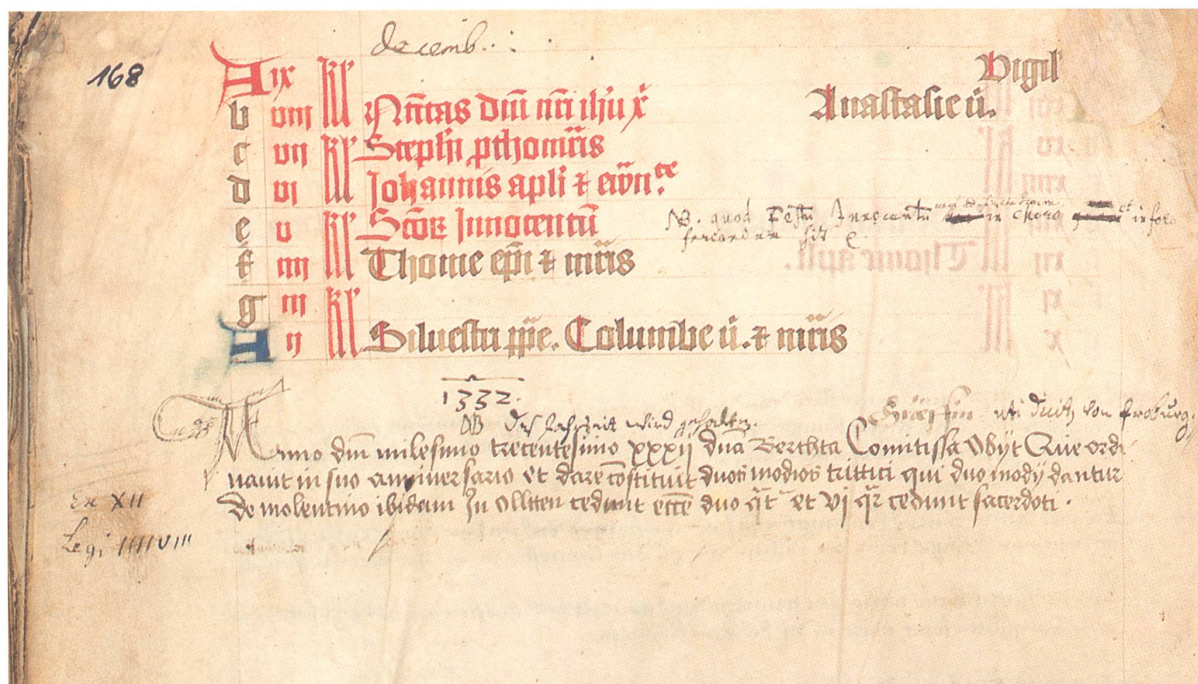 decemb.
168
A ix kl' Vigil'
b viij kl' Natitas dni nri ihu x Anastasie v.
c vij kl' Stephi pthomris
d vj kl' Johannis apli et ewn.te
e v kl' Scor Innocentu NB. quod Festu Innocentu in choro et in foro
feriandum sit
f iiij kl' Thome epi et mris
g iij kl'
A ij kl' Siluestri ppe. Columbe v. et mris
1332.
NB dis Jahrzeit wird gehalten. von froburg
Anno dni milesimo trecentesimo xxxij dna Berchta Comitissa obijt Que ordi
nauit in suo anniversario et dare constituit duos modios trittici qui duo modij dantur
de molentino ibidem In Ollten cedunt ecce duo qrt et vj qr cedunt sacerdoti.
Ex XII
Legi IIIIVIII